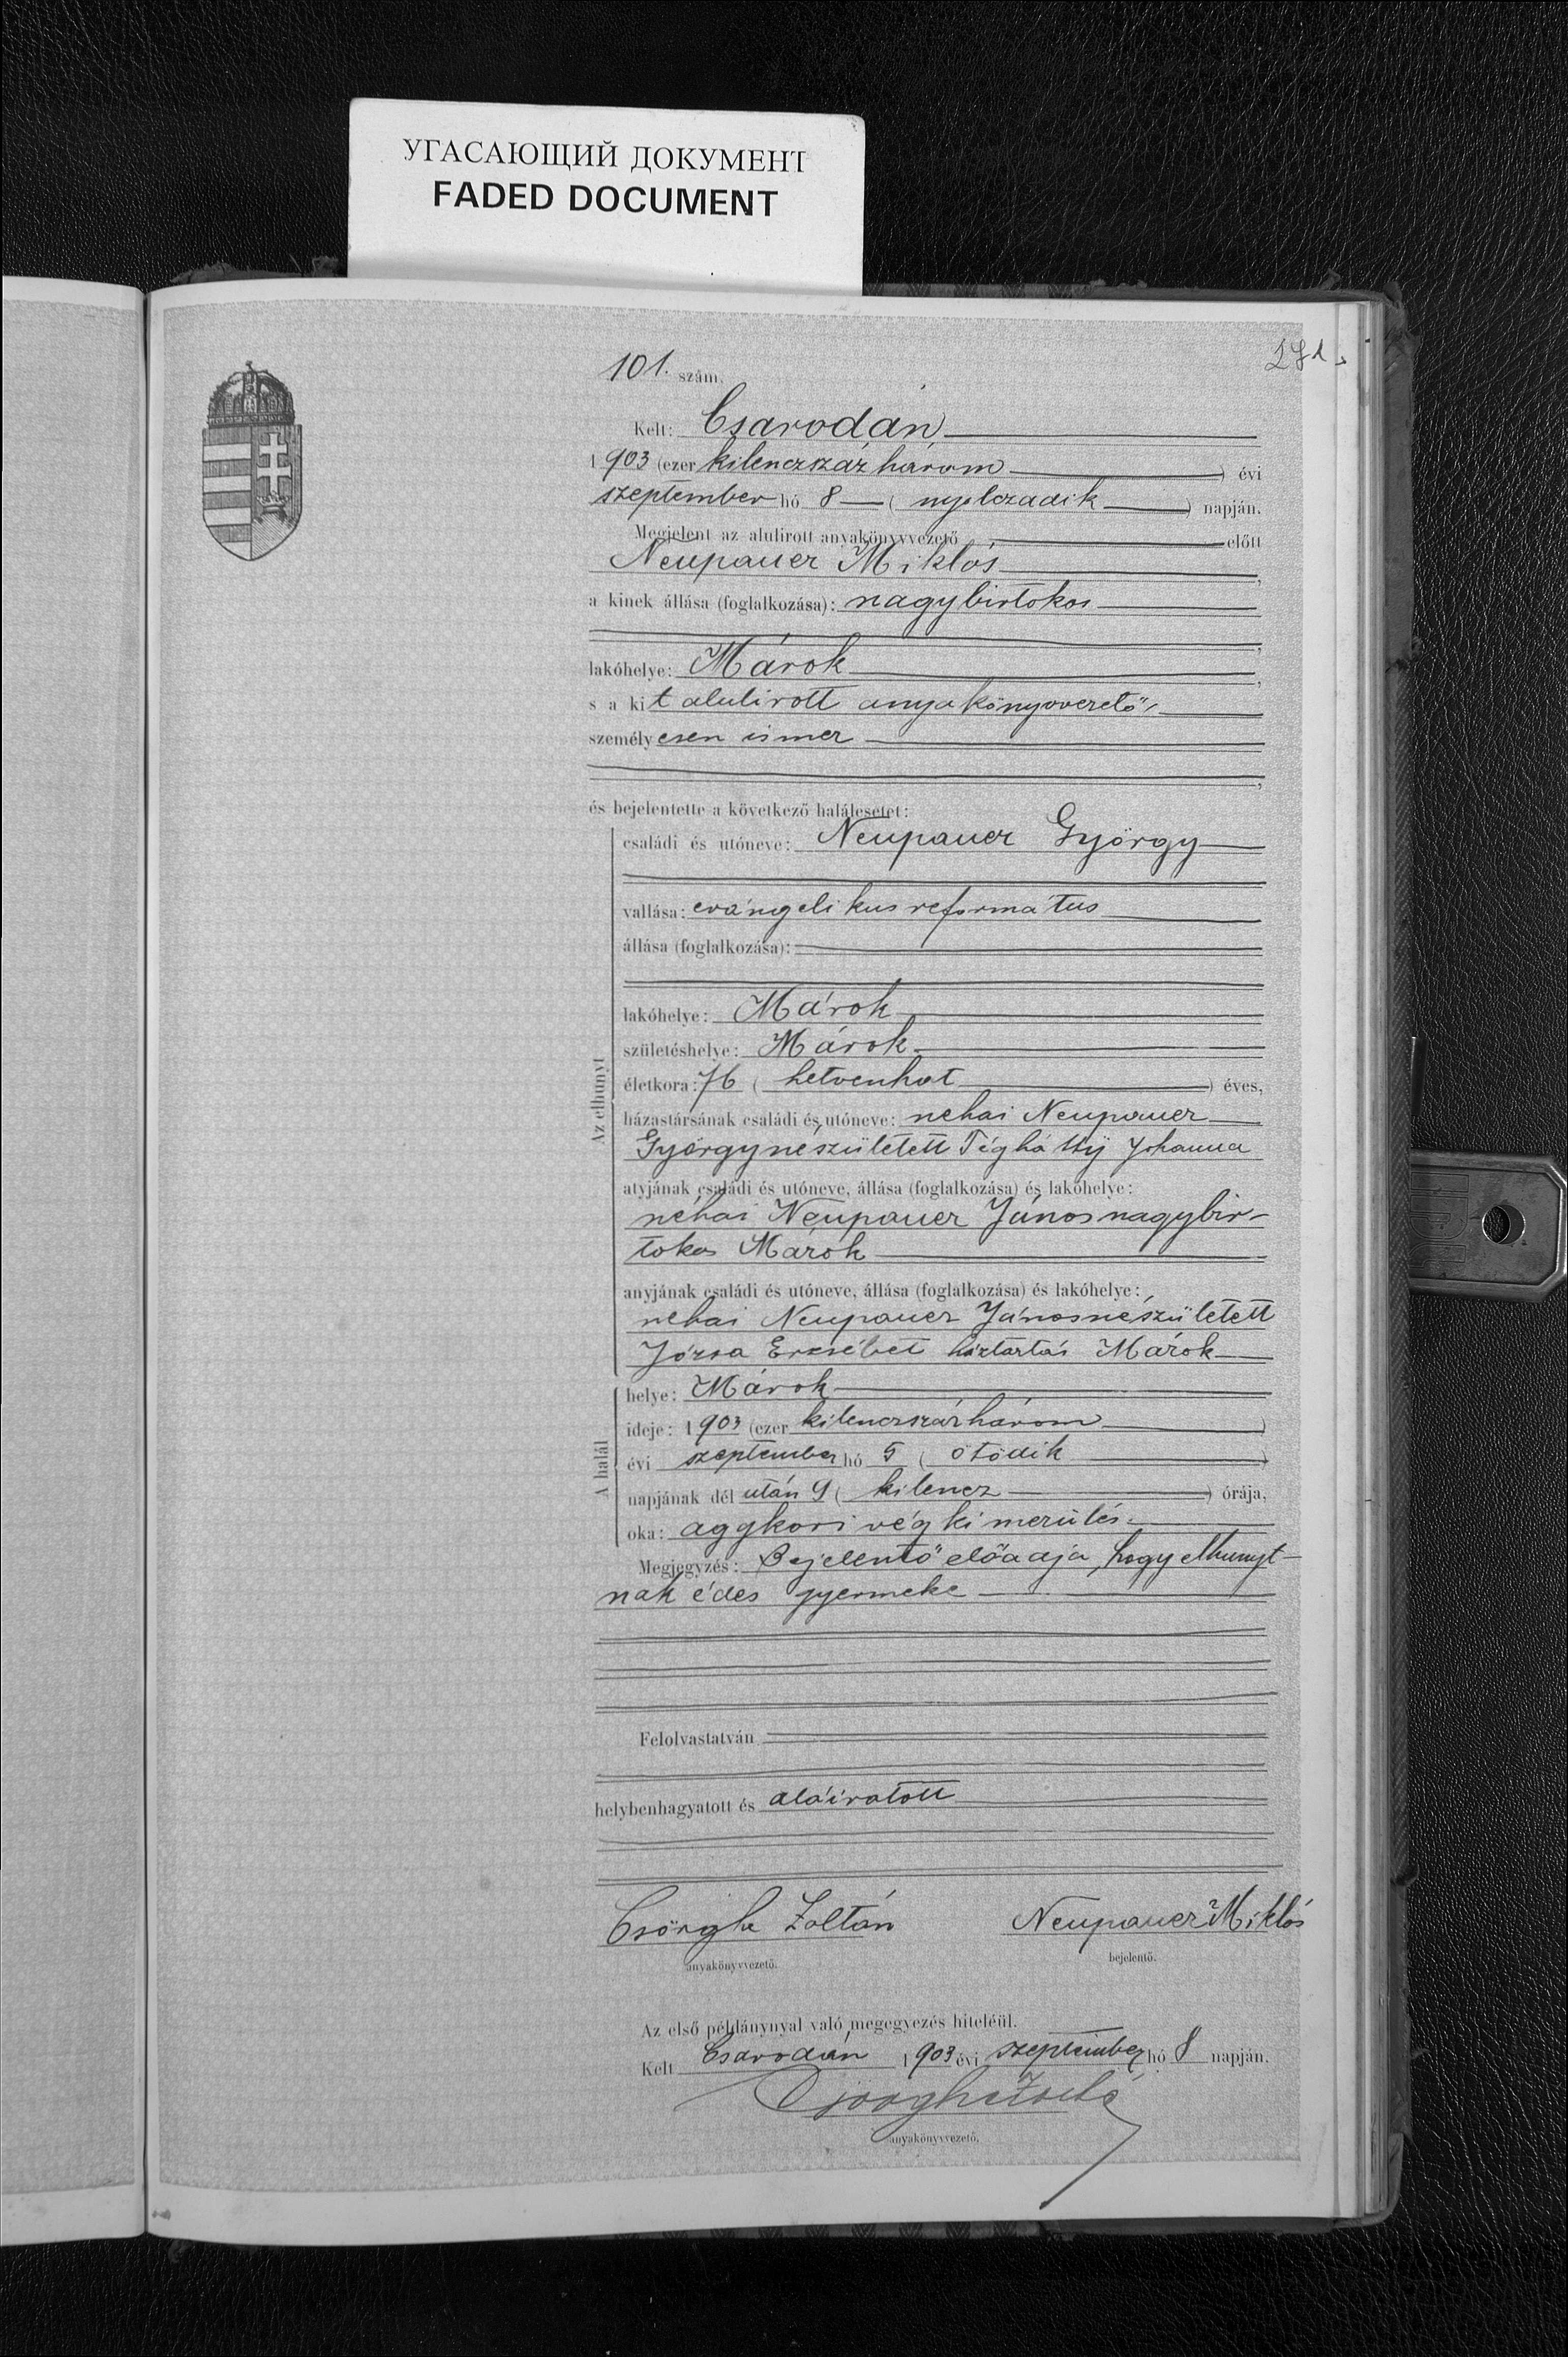 УГАСАЮЩИЙ ДОКУМЕНТ
FADED DOCUMENT
271.
101. szám.
Kelt: Csarodán
1903 (ezer kilenczszáz három) évi
szeptember hó 8 (nyolczadik) napján.
Megjelent az alulirott anyakönyvvezető előtt
Neupauer Miklós,
a kinek állása (foglalkozása): nagybirtokos
,
lakóhelye: Márok,
s a kit alulirott anyakönyvvezető
személyesen ismer
,
és bejelentette a következő halálesetet:
Az elhunyt
családi és utóneve: Neupauer György
vallása: evángelikus református
állása (foglalkozása):
lakóhelye: Márok
születéshelye: Márok
életkora: 76 (hetvenhat) éves,
házastársának családi és utóneve: néhai Neupauer
Györgyné született Tégháttÿ Johanna
atyjának családi és utóneve, állása (foglalkozása) és lakóhelye:
néhai Neupauer János nagybir-
tokos Márok
anyjának családi és utóneve, állása (foglalkozása) és lakóhelye:
néhai Neupauer Jánosné született
Józsa Erzsébet háztartás Márok
A halál
helye: Márok
ideje: 1903 (ezer kilenczszázhárom)
évi szeptember hó 5 (ötödik)
napjának dél után 9 (kilencz) órája,
oka: aggkori végkimerülés.
Megjegyzés: Bejelentő előadja, hogy elhunyt-
nak édes gyermeke
Felolvastatván
helybenhagyatott és aláiratott
Csörghe Zoltán Neupauer Miklós
anyakönyvvezető. bejelentő.
Az első példánynyal való megegyezés hiteléül.
Kelt Csarodán 1903 évi szeptember hó 8 napján.
anyakönyvvezető.